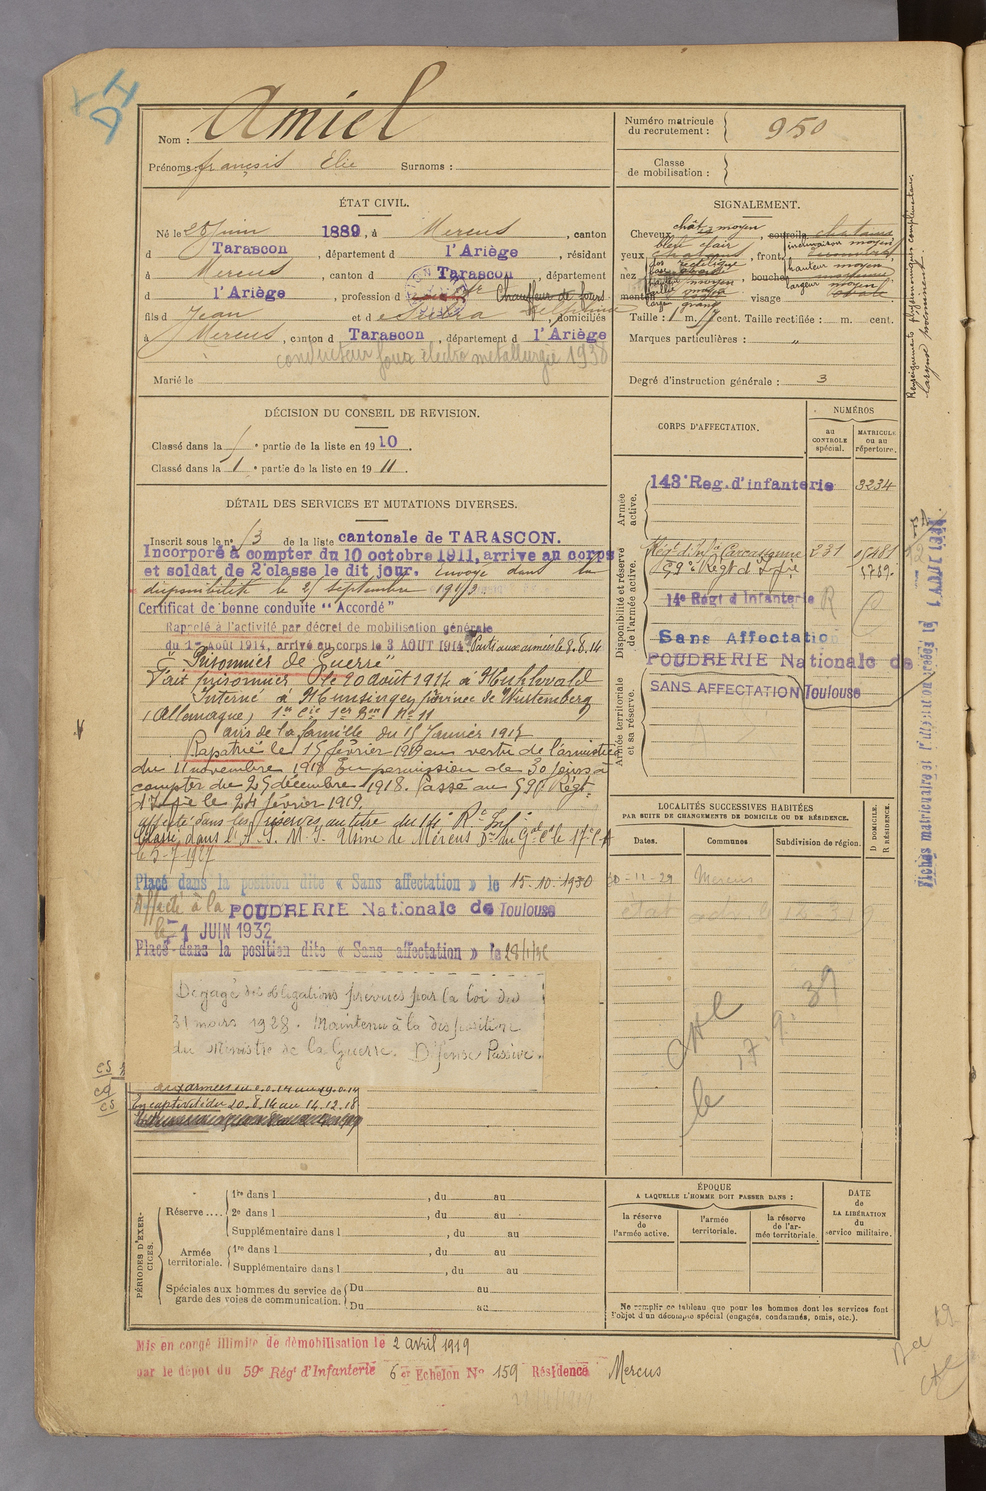 Nom : Amiel
Prénoms : françois Élie Surnoms :
Numéro matricule du recrutement : 950
Classe de mobilisation :
ÉTAT CIVIL.
Né le 28 juin 1889, à Mercus, canton
d Tarascon, département d l'Ariège, résidant
à Mercus, canton d Tarascon, département
d l'Ariège, profession d Chauffeur de fours
fils d Jean et d Delphine, domiciliés
à Mercus, canton d Tarascon, département d l'Ariège
conducteur fours électro métallurgie 1938
Marié le
SIGNALEMENT.
Cheveux chât. moyen, sourcils chatains
bleu clair inclinaison moyen
yeux, front
dos rectiligne hauteur moyen
nez, bouche moyenne
largeur moyen
menton, visage
Taille : 1 m. cent. Taille rectifiée : m. cent.
Marques particulières : "
Degré d'instruction générale : 3
Renseignements physionomiques complémentaires.
larynx proéminent
DÉCISION DU CONSEIL DE REVISION.
Classé dans la 1e partie de la liste en 1910.
Classé dans la 1e partie de la liste en 1911.
DÉTAIL DES SERVICES ET MUTATIONS DIVERSES.
Inscrit sous le n° 13 de la liste cantonale de TARASCON.
Incorporé à compter du 10 octobre 1911, arrive au corps
et soldat de 2e classe le dit jour. envoyé dans la
disponibilité le 25 septembre 1913
Certificat de bonne conduite "Accordé"
Rappelé à l'activité par décret de mobilisation générale
du 1er août 1914, arrivé au corps le 3 AOUT 1914. Parti aux armées le 8.8.14
"Prisonnier de Guerre"
Fait prisonnier le 20 août 1914 à
Interné à Munsingen province de Wurtemberg
(Allemagne) 1re Cie 1er Bon N° 11
avis de la famille du 15 Janvier 1915
Rapatrié le 15 février 1919 en vertu de l'armistice
du 11 novembre 1918 En permission de 30 jours à
compter du 25 décembre 1918. Passé au 59e Régt
d'Infie le 24 février 1919.
affecté dans les réserves au titre du 14e Rt Inf
Classé dans l'A. S. M. I. Usine de Mercus
le 5-7-1927
Placé dans la position dite « Sans affectation » le 15-10-1930
Affecté à la POUDRERIE Nationale de Toulouse
le 1 JUIN 1932
Placé dans la position dite « Sans affectation » le
Dégagé des obligations prévues par la loi du
31 mars 1928. Maintenu à la disposition
du Ministre de la Guerre. Défense Passive.
aux armées du
En captivité du 20.8.14 au 14.12.18
CORPS D'AFFECTATION.
NUMÉROS
au CONTROLE spécial.
MATRICULE ou au répertoire.
Armée active.
143e Reg. d'infanterie 3234
Disponibilité et réserve de l'armée active.
Rég d'Inf Carcassonne 231
59e Régt d'Infie 1789
14e Régt d'Infanterie
Sans Affectation
POUDRERIE Nationale de Toulouse
Armée territoriale et sa réserve.
SANS AFFECTATION
LOCALITÉS SUCCESSIVES HABITÉES
PAR SUITE DE CHANGEMENTS DE DOMICILE OU DE RÉSIDENCE.
Dates. Communes Subdivision de région. D DOMICILE. R RÉSIDENCE.
30-11-29 Mercus
PÉRIODES D'EXERCICES.
Réserve.... 1re dans l , du au
2e dans l , du au
Supplémentaire dans l , du au
Armée territoriale. 1re dans l , du au
Supplémentaire dans l , du au
Spéciales aux hommes du service de garde des voies de communication. Du au
Du au
ÉPOQUE
A LAQUELLE L'HOMME DOIT PASSER DANS :
la réserve de l'armée active.
l'armée territoriale.
la réserve de l'armée territoriale.
DATE de LA LIBÉRATION du service militaire.
Ne remplir ce tableau que pour les hommes dont les services font
l'objet d'un décompte spécial (engagés, condamnés, omis, etc.).
Mis en congé illimité de démobilisation le 2 avril 1919
par le dépôt du 59e Régt d'Infanterie 6e Echelon No 159 Résidence Mercus